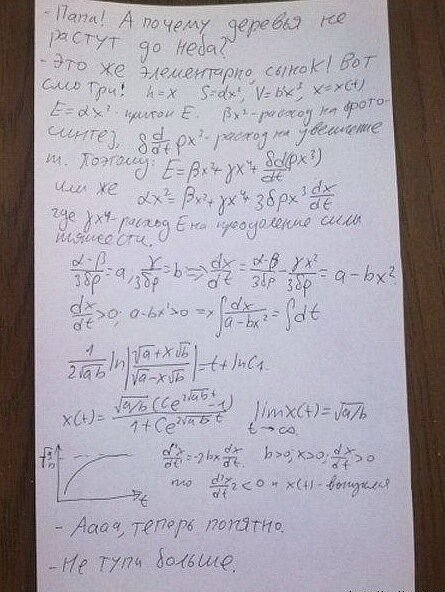 - Папа! А почему деревья не
растут до неба?
- Это же элементарно, сынок! Вот
смотри! h=x S=αx², V=bx³, x=x(t)
E=αx² - приток E. βx² - расход на фото-
синтез, δ d/dt ρx³ - расход на увеличение
m. Поэтому: E=βx²+γx⁴+δd(ρx³)/dt
или же αx²=βx²+γx⁴+3δρx² dx/dt
где γx⁴ - расход E на преодоление силы
тяжести.
(α-β)/3δρ=a, γ/3δρ=b => dx/dt=(α-β)/3δρ - γx²/3δρ = a-bx²
dx/dt>0; a-bx²>0 => ∫dx/(a-bx²)=∫dt
1/(2√ab) ln|(√a+x√b)/(√a-x√b)|=t+lnC₁
x(t)=√a/b(Ce^(2√ab t)-1)/(1+Ce^(2√ab t)) lim x(t)=√a/b
t→∞
√a/b t
d²x/dt²=-2bx dx/dt. b>0, x>0; dx/dt>0
то d²x/dt²<0 и x(t) - выпуклая
- Аааа, теперь понятно.
- Не тупи больше.